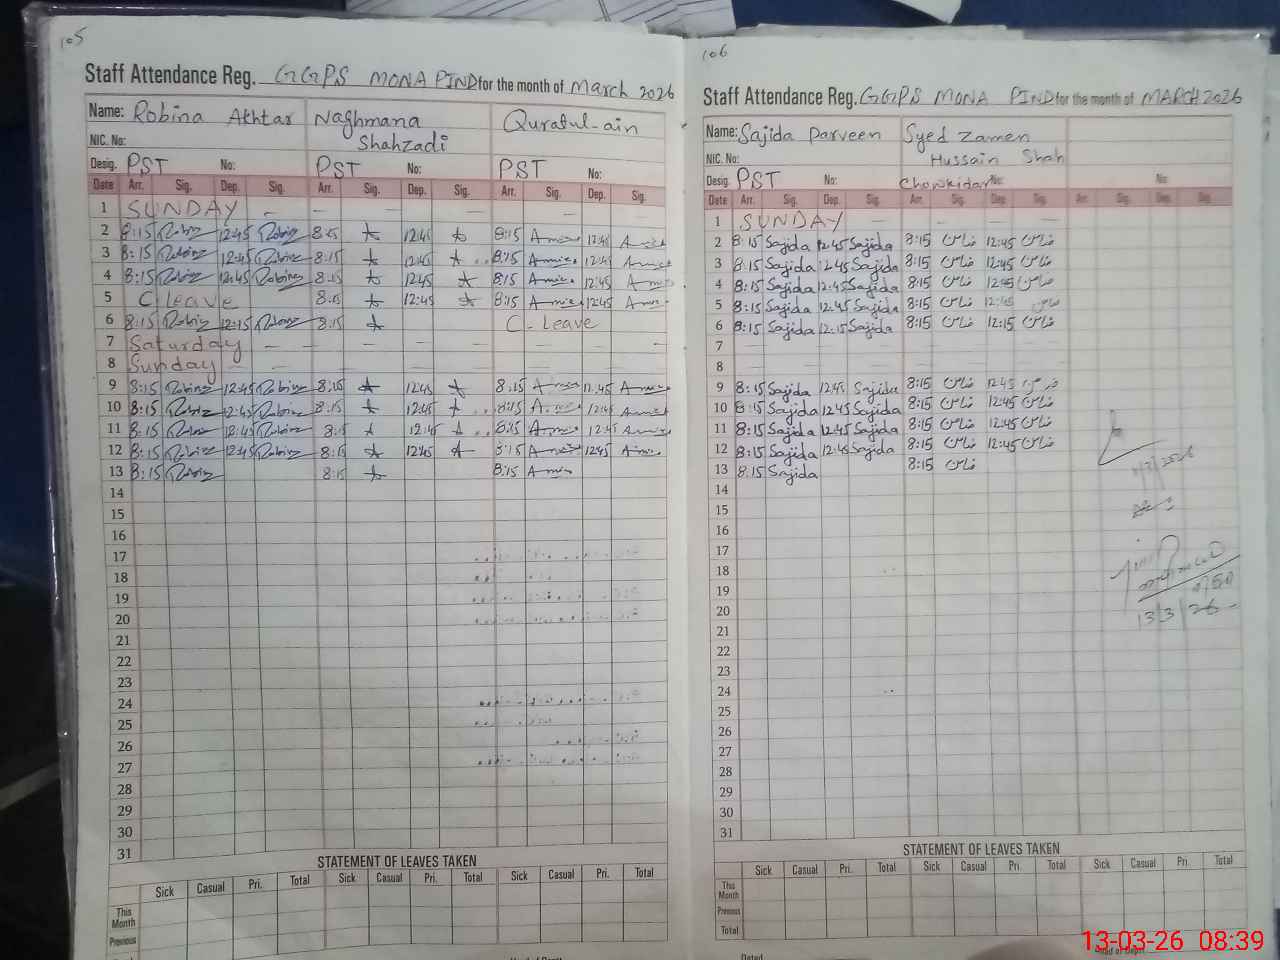 105
Staff Attendance Reg. GGPS MONA PIND for the month of March 2026
Name: Robina Akhtar Naghmana Shahzadi Quratul-ain
NIC. No:
Desig. PST No: PST No: PST No:
Date Arr. Sig. Dep. Sig. Arr. Sig. Dep. Sig. Arr. Sig. Dep. Sig.
1 SUNDAY
2 8:15 Robina 12:45 Robina 8:15 12:45 8:15 12:45
3 8:15 Robina 12:45 Robina 8:15 12:45 8:15 12:45
4 8:15 Robina 12:45 Robina 8:15 12:45 8:15 12:45
5 C leave 8:15 12:45 8:15 12:45
6 8:15 Robina 12:15 Robina 8:15 C-Leave
7 Saturday
8 Sunday
9 8:15 Robina 12:45 Robina 8:15 12:45 8:15 12:45
10 8:15 Robina 12:45 Robina 8:15 12:45 8:15 12:45
11 8:15 Robina 12:45 Robina 8:15 12:45 8:15 12:45
12 8:15 Robina 12:45 Robina 8:15 12:45 8:15 12:45
13 8:15 Robina 8:15 8:15
14
15
16
17
18
19
20
21
22
23
24
25
26
27
28
29
30
31
STATEMENT OF LEAVES TAKEN
Sick Casual Pri. Total Sick Casual Pri. Total Sick Casual Pri. Total
This Month
Previous
106
Staff Attendance Reg. GGPS MONA PIND for the month of MARCH 2026
Name: Sajida Parveen Syed Zamen
NIC. No: Hussain Shah
Desig. PST No: Chowkidar No: No:
Date Arr. Sig. Dep. Sig. Arr. Sig. Dep Sig. Arr. Sig. Dep. Sig.
1 SUNDAY
2 8:15 Sajida 12:45 Sajida 8:15 ضامن 12:45 ضامن
3 8:15 Sajida 12:45 Sajida 8:15 ضامن 12:45 ضامن
4 8:15 Sajida 12:45 Sajida 8:15 ضامن 12:45 ضامن
5 8:15 Sajida 12:45 Sajida 8:15 ضامن 12:45 ضامن
6 8:15 Sajida 12:15 Sajida 8:15 ضامن 12:15 ضامن
7
8
9 8:15 Sajida 12:45 Sajida 8:15 ضامن 12:45 ضامن
10 8:15 Sajida 12:45 Sajida 8:15 ضامن 12:45 ضامن
11 8:15 Sajida 12:45 Sajida 8:15 ضامن 12:45 ضامن
12 8:15 Sajida 12:45 Sajida 8:15 ضامن 12:45 ضامن
13 8:15 Sajida 8:15 ضامن
14
15
16
17
18
19
20
21
22
23
24
25
26
27
28
29
30
31
13/3/26
STATEMENT OF LEAVES TAKEN
Sick Casual Pri. Total Sick Casual Pri. Total Sick Casual Pri. Total
This Month
Previous
Total
Dated
13-03-26 08:39